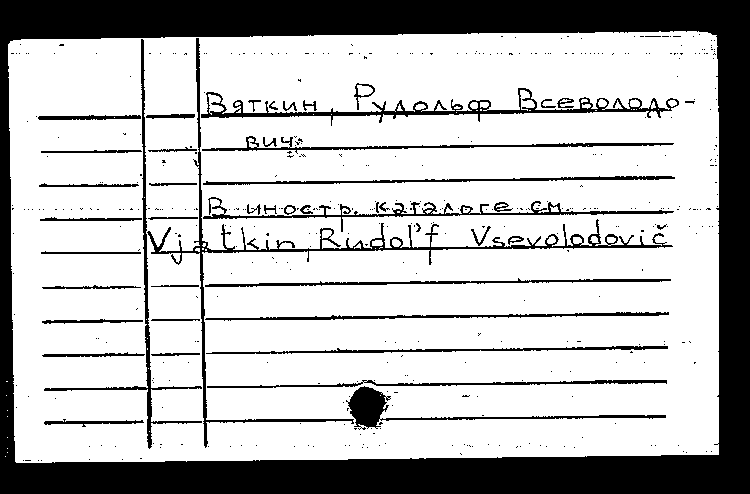 Вяткин, Рудольф Всеволодо-
вич.
В иностр. каталоге см.
Vjatkin, Rudol'f Vsevolodovič